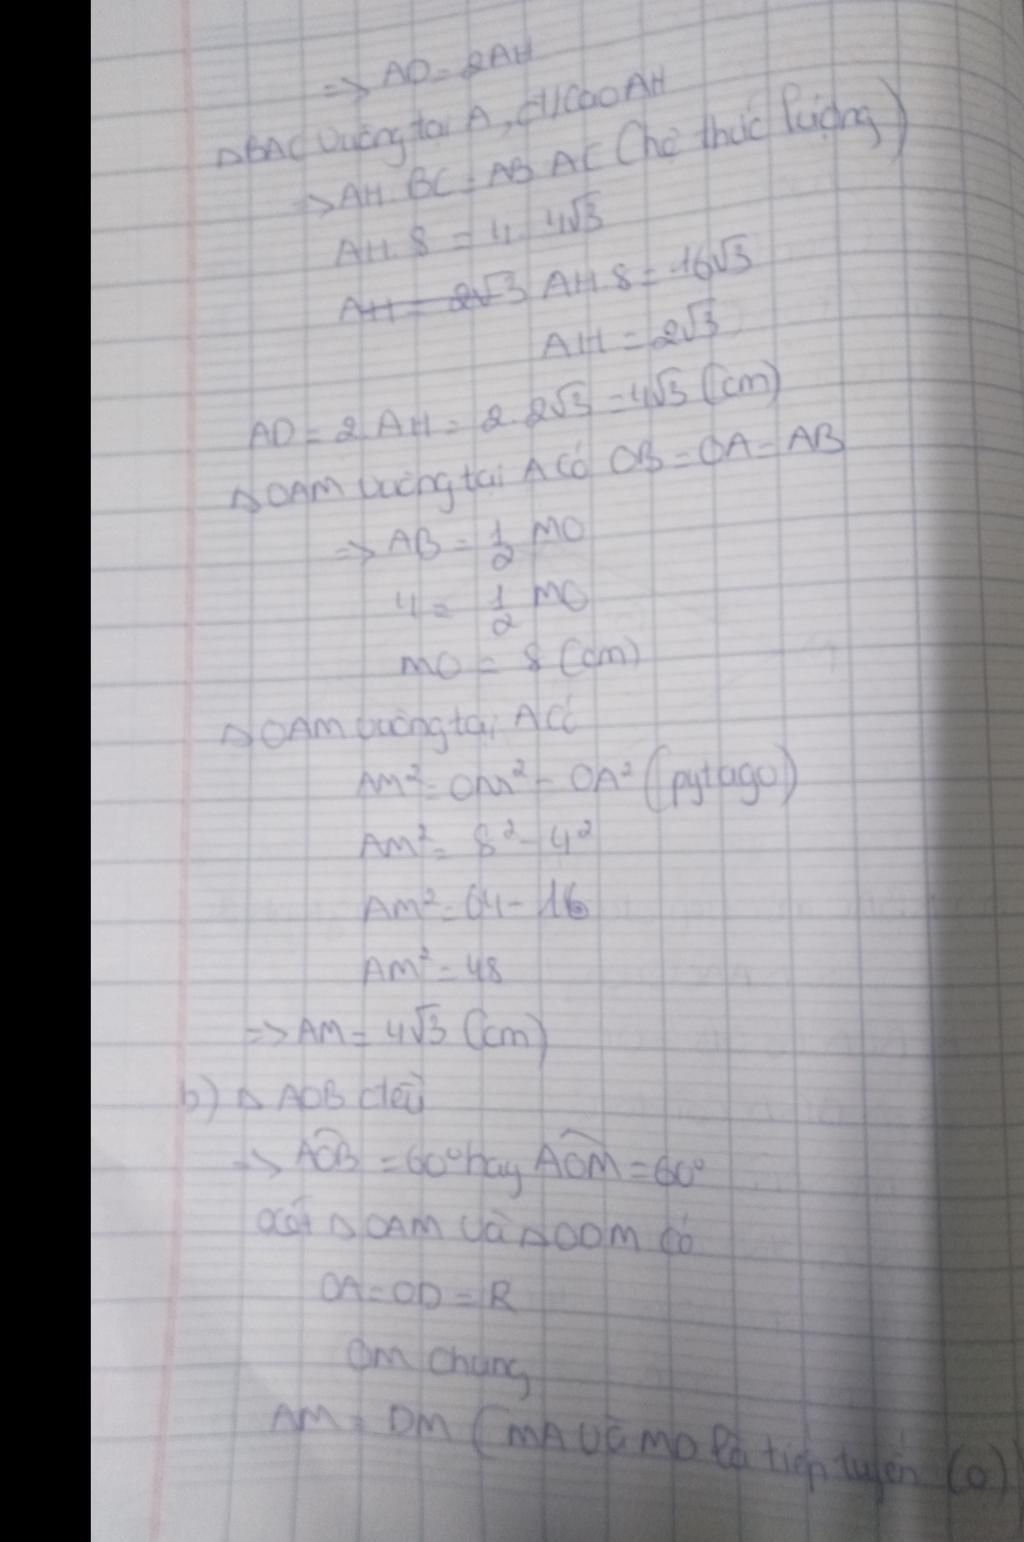 => AD = 2AH
△BAC vuông tại A, đ/cao AH
=> AH. BC = AB. AC (hệ thức lượng)
AH. 8 = 4. 4√3
AH = 2√3 AH. 8 = 16√3
AH = 2√3
AD = 2. AH = 2. 2√3 = 4√3 (cm)
△OAM vuông tại A Có OB = OA = AB
=> AB = 1/2 MO
4 = 1/2 MO
MO = 8 (cm)
△OAM vuông tại A Có
AM² = OM² - OA² (pytago)
AM² = 8² - 4²
AM² = 64 - 16
AM² = 48
=> AM = 4√3 (cm)
b) △ AOB đều
=> AÔB = 60° hay AÔM = 60°
Xét △OAM và △ODM có
OA = OD = R
OM chung
AM = DM (MA và MD là tiếp tuyến (O)